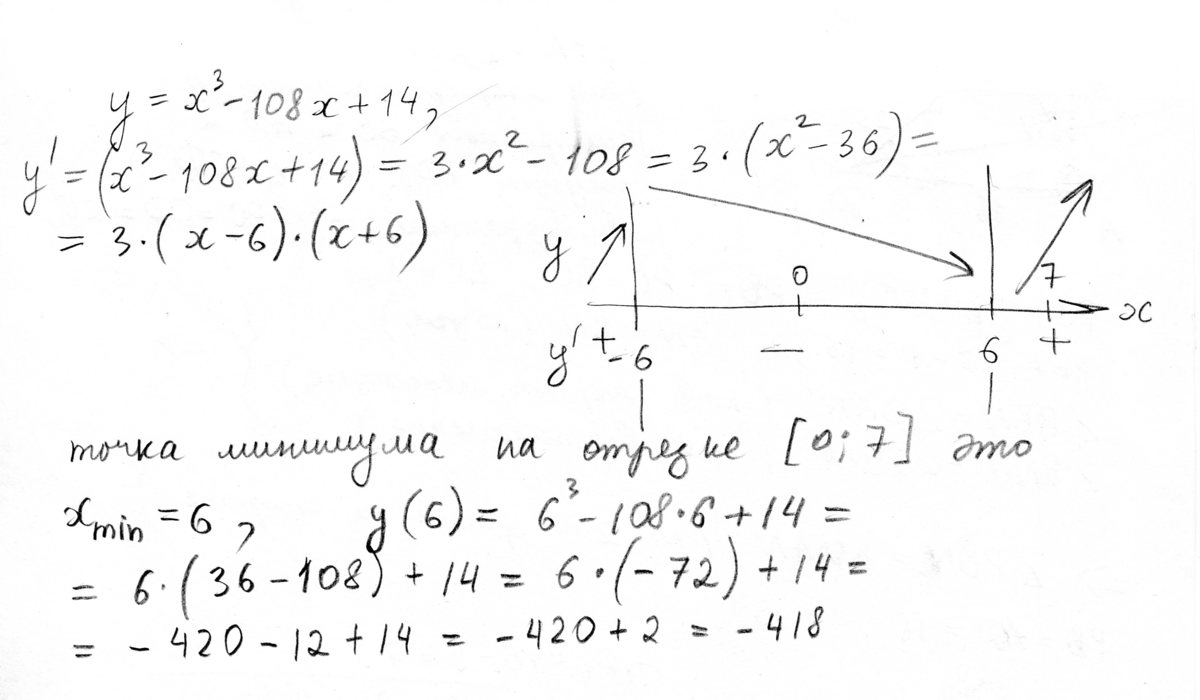 y = x³ - 108x + 14,
y' = (x³ - 108x + 14) = 3·x² - 108 = 3·(x² - 36) =
= 3·(x - 6)·(x + 6)
y 0 7 x
y' + -6 — 6 +
точка минимума на отрезке [0; 7] это
x min = 6, y(6) = 6³ - 108·6 + 14 =
= 6·(36 - 108) + 14 = 6·(-72) + 14 =
= -420 - 12 + 14 = -420 + 2 = -418